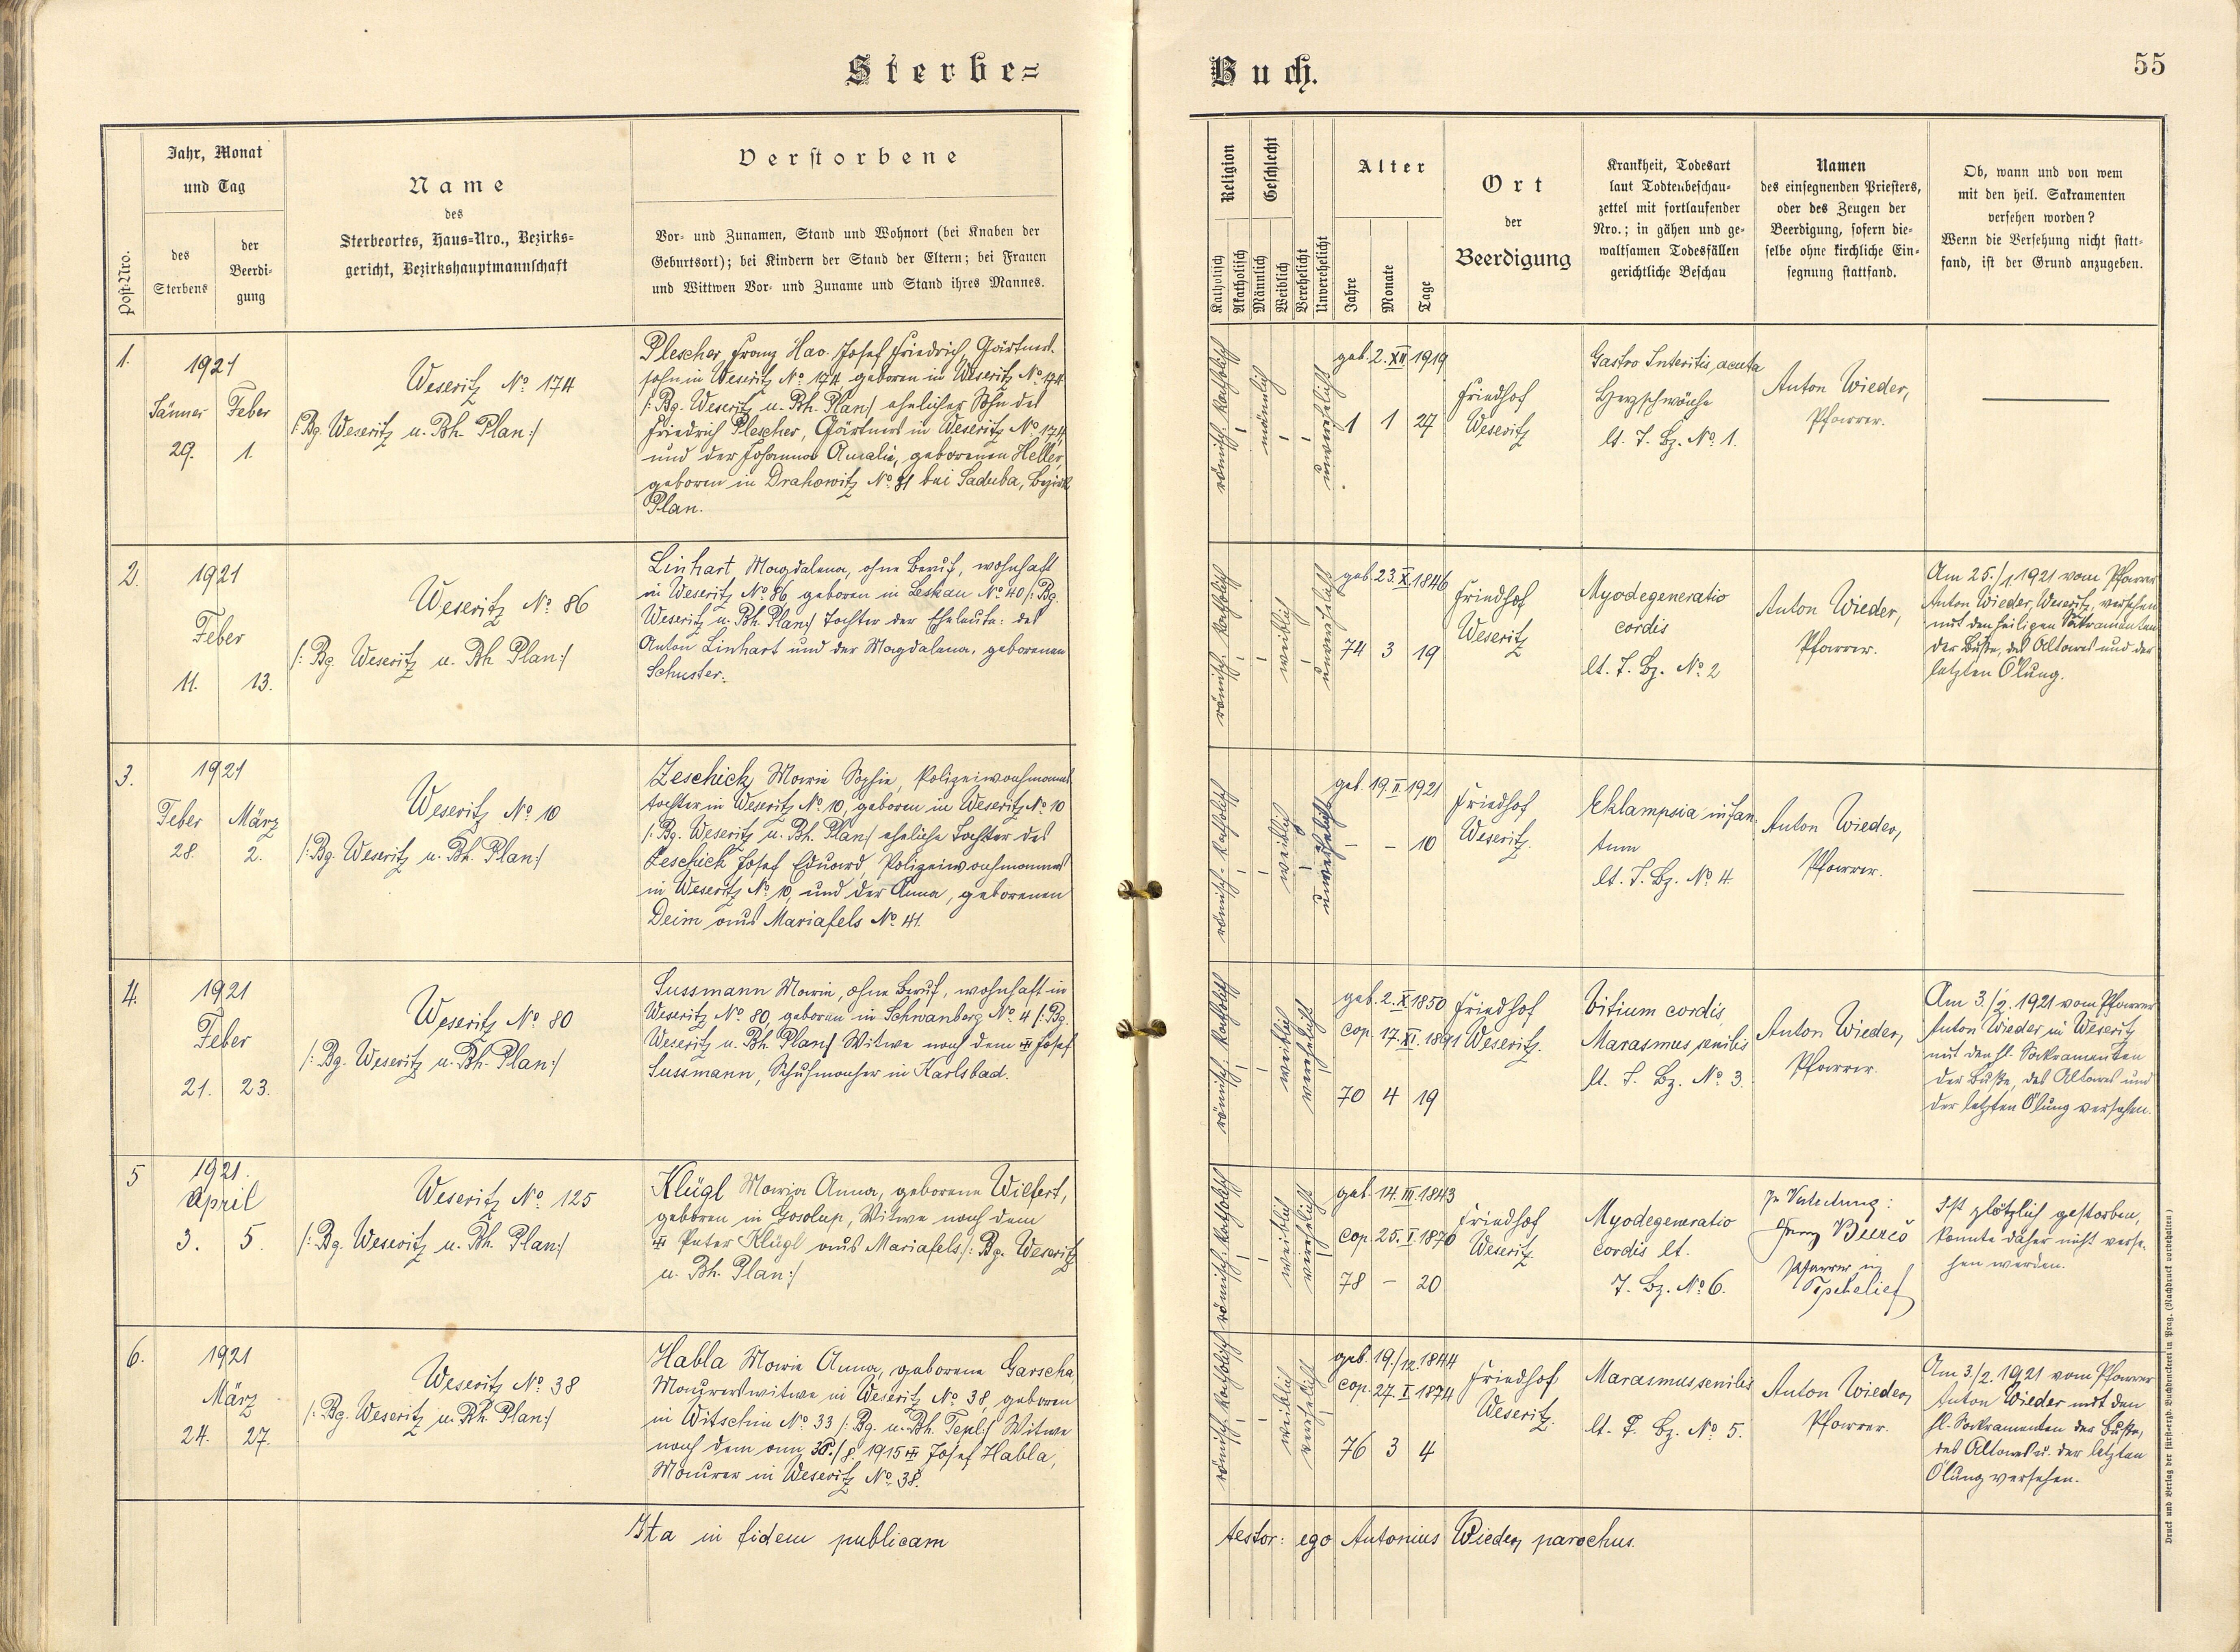 Sterbe=
Buch.
55
Post-Nro.
Jahr, Monat
und Tag
des
Sterbens
der
Beerdi-
gung
Name
des
Sterbeortes, Haus=Nro., Bezirks=
gericht, Bezirkshauptmannschaft
Verstorbene
Vor- und Zunamen, Stand und Wohnort (bei Knaben der
Geburtsort); bei Kindern der Stand der Eltern; bei Frauen
und Wittwen Vor- und Zuname und Stand ihres Mannes.
Religion
Katholisch
Akatholisch
Geschlecht
Männlich
Weiblich
Verehelicht
Unverehelicht
Alter
Jahre
Monate
Tage
Ort
der
Beerdigung
Krankheit, Todesart
laut Todtenbeschau-
zettel mit fortlaufender
Nro.; in gähen und ge-
waltsamen Todesfällen
gerichtliche Beschau
Namen
des einsegnenden Priesters,
oder des Zeugen der
Beerdigung, sofern die-
selbe ohne kirchliche Ein-
segnung stattfand.
Ob, wann und von wem
mit den heil. Sakramenten
versehen worden?
Wenn die Versehung nicht statt-
fand, ist der Grund anzugeben.
1.
1921
Jänner Feber
29. 1.
Weseritz No 174
/: Bg. Weseritz u. Bh. Plan :/
Plescher Franz Xav. Josef Friedrich, Gärtners-
sohn in Weseritz No 174, geboren in Weseritz No 174
/: Bg. Weseritz u. Bh. Plan :/ ehelicher Sohn des
Friedrich Plescher, Gärtners in Weseritz No 174,
und der Johanna Amalie, geborenen Heller,
geboren in Drahowitz No 31 bei Saduba, Bezirk
Plan.
römisch-katholisch
männlich
unverehelicht
geb. 2. XII 1919
1 1 27
Friedhof
Weseritz
Gastro Enteritis acuta
Herzschwäche
lt. T. Bz. No 1.
Anton Wieder,
Pfarrer.
2.
1921
Feber
11. 13.
Weseritz No 86
/: Bg. Weseritz u. Bh. Plan :/
Linhart Magdalena, ohne Beruf, wohnhaft
in Weseritz No 86 geboren in Leskau No 40 /: Bg.
Weseritz u. Bh. Plan :/ Tochter der Eheleute: des
Anton Linhart und der Magdalena, geborenen
Schuster.
römisch-katholisch
weiblich
unverehelicht
geb. 23. X. 1846
74 3 19
Friedhof
Weseritz
Myodegeneratio
cordis
lt. T. Bz. No 2
Anton Wieder,
Pfarrer.
Am 25./1. 1921 vom Pfarrer
Anton Wieder, Weseritz, versehen
mit den heiligen Sakramenten
der Buße, des Altares und der
letzten Ölung.
3.
1921
Feber März
28. 2.
Weseritz No 10
/: Bg. Weseritz u. Bh. Plan :/
Zeschick Marie Sophie, Polizeiwachmanns-
tochter in Weseritz No 10, geboren in Weseritz No 10
/: Bg. Weseritz u. Bh. Plan :/ eheliche Tochter des
Zeschick Josef Eduard, Polizeiwachmannes
in Weseritz No 10, und der Anna, geborenen
Deim aus Mariafels No 41.
römisch-katholisch
weiblich
unverehelicht
geb. 19. II 1921
– – 10
Friedhof
Weseritz.
Eklampsia infan-
tum
lt. T. Bz. No 4.
Anton Wieder,
Pfarrer.
4.
1921
Feber
21. 23.
Weseritz No 80
/: Bg. Weseritz u. Bh. Plan :/
Sussmann Marie, ohne Beruf, wohnhaft in
Weseritz No 80, geboren in Schwanberg No 4 /: Bg.
Weseritz u. Bh. Plan :/ Witwe nach dem Josef
Sussmann, Schuhmacher in Karlsbad.
römisch-katholisch
weiblich
verehelicht
geb. 2. X 1850
cop. 17. XI. 1891
70 4 19
Friedhof
Weseritz.
Vitium cordis,
Marasmus senilis
lt. T. Bz. No 3.
Anton Wieder,
Pfarrer.
Am 3./2. 1921 vom Pfarrer
Anton Wieder in Weseritz
mit den hl. Sakramenten
der Buße, des Altares und
der letzten Ölung versehen.
5
1921.
April
3. 5.
Weseritz No 125
/: Bg. Weseritz u. Bh. Plan :/
Klügl Maria Anna, geborene Wilfert,
geboren in Gosolup, Witwe nach dem
Peter Klügl aus Mariafels /: Bg. Weseritz
u. Bh. Plan :/
römisch-katholisch
weiblich
verehelicht
geb. 14. III. 1843
cop. 25. I. 1870
78 – 20
Friedhof
Weseritz.
Myodegeneratio
cordis lt.
T. Bz. No 6.
In Vertretung:
Pfarrer in
Ist plötzlich gestorben,
konnte daher nicht verse-
hen werden.
6.
1921
März
24. 27.
Weseritz No 38
/: Bg. Weseritz u. Bh. Plan :/
Habla Marie Anna, geborene Garscha,
Maurerswitwe in Weseritz No 38, geboren
in Witschin No 33 /: Bg. u. Bh. Tepl :/ Witwe
nach dem am 30./8. 1915 Josef Habla,
Maurer in Weseritz No 38.
römisch-katholisch
weiblich
verehelicht
geb. 19./12. 1844
cop. 27. I 1874
76 3 4
Friedhof
Weseritz.
Marasmus senilis
lt. T. Bz. No 5.
Anton Wieder,
Pfarrer.
Am 3./2. 1921 vom Pfarrer
Anton Wieder mit den
hl. Sakramenten der Buße,
des Altares u. der letzten
Ölung versehen.
Ita in fidem publicam testor: ego Antonius Wieder, parochus.
Druck und Verlag der fürst-erzb. Buchdruckerei in Prag. (Nachdruck vorbehalten.)